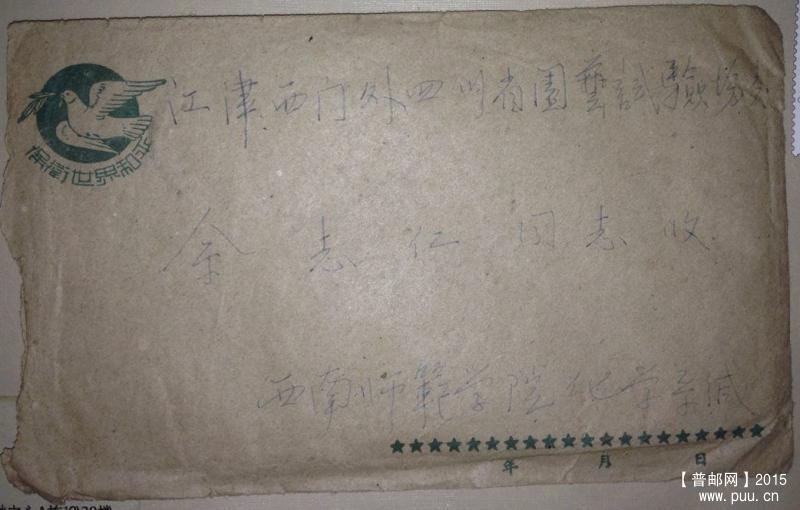 保衛世界和平
江津西门外四川省園藝試驗場交
余志仁同志收
西南师範学院化学系缄
★★★★★★★★★★★★★★★★★★★★
年 月 日
【普邮网】2015
www.puu.cn